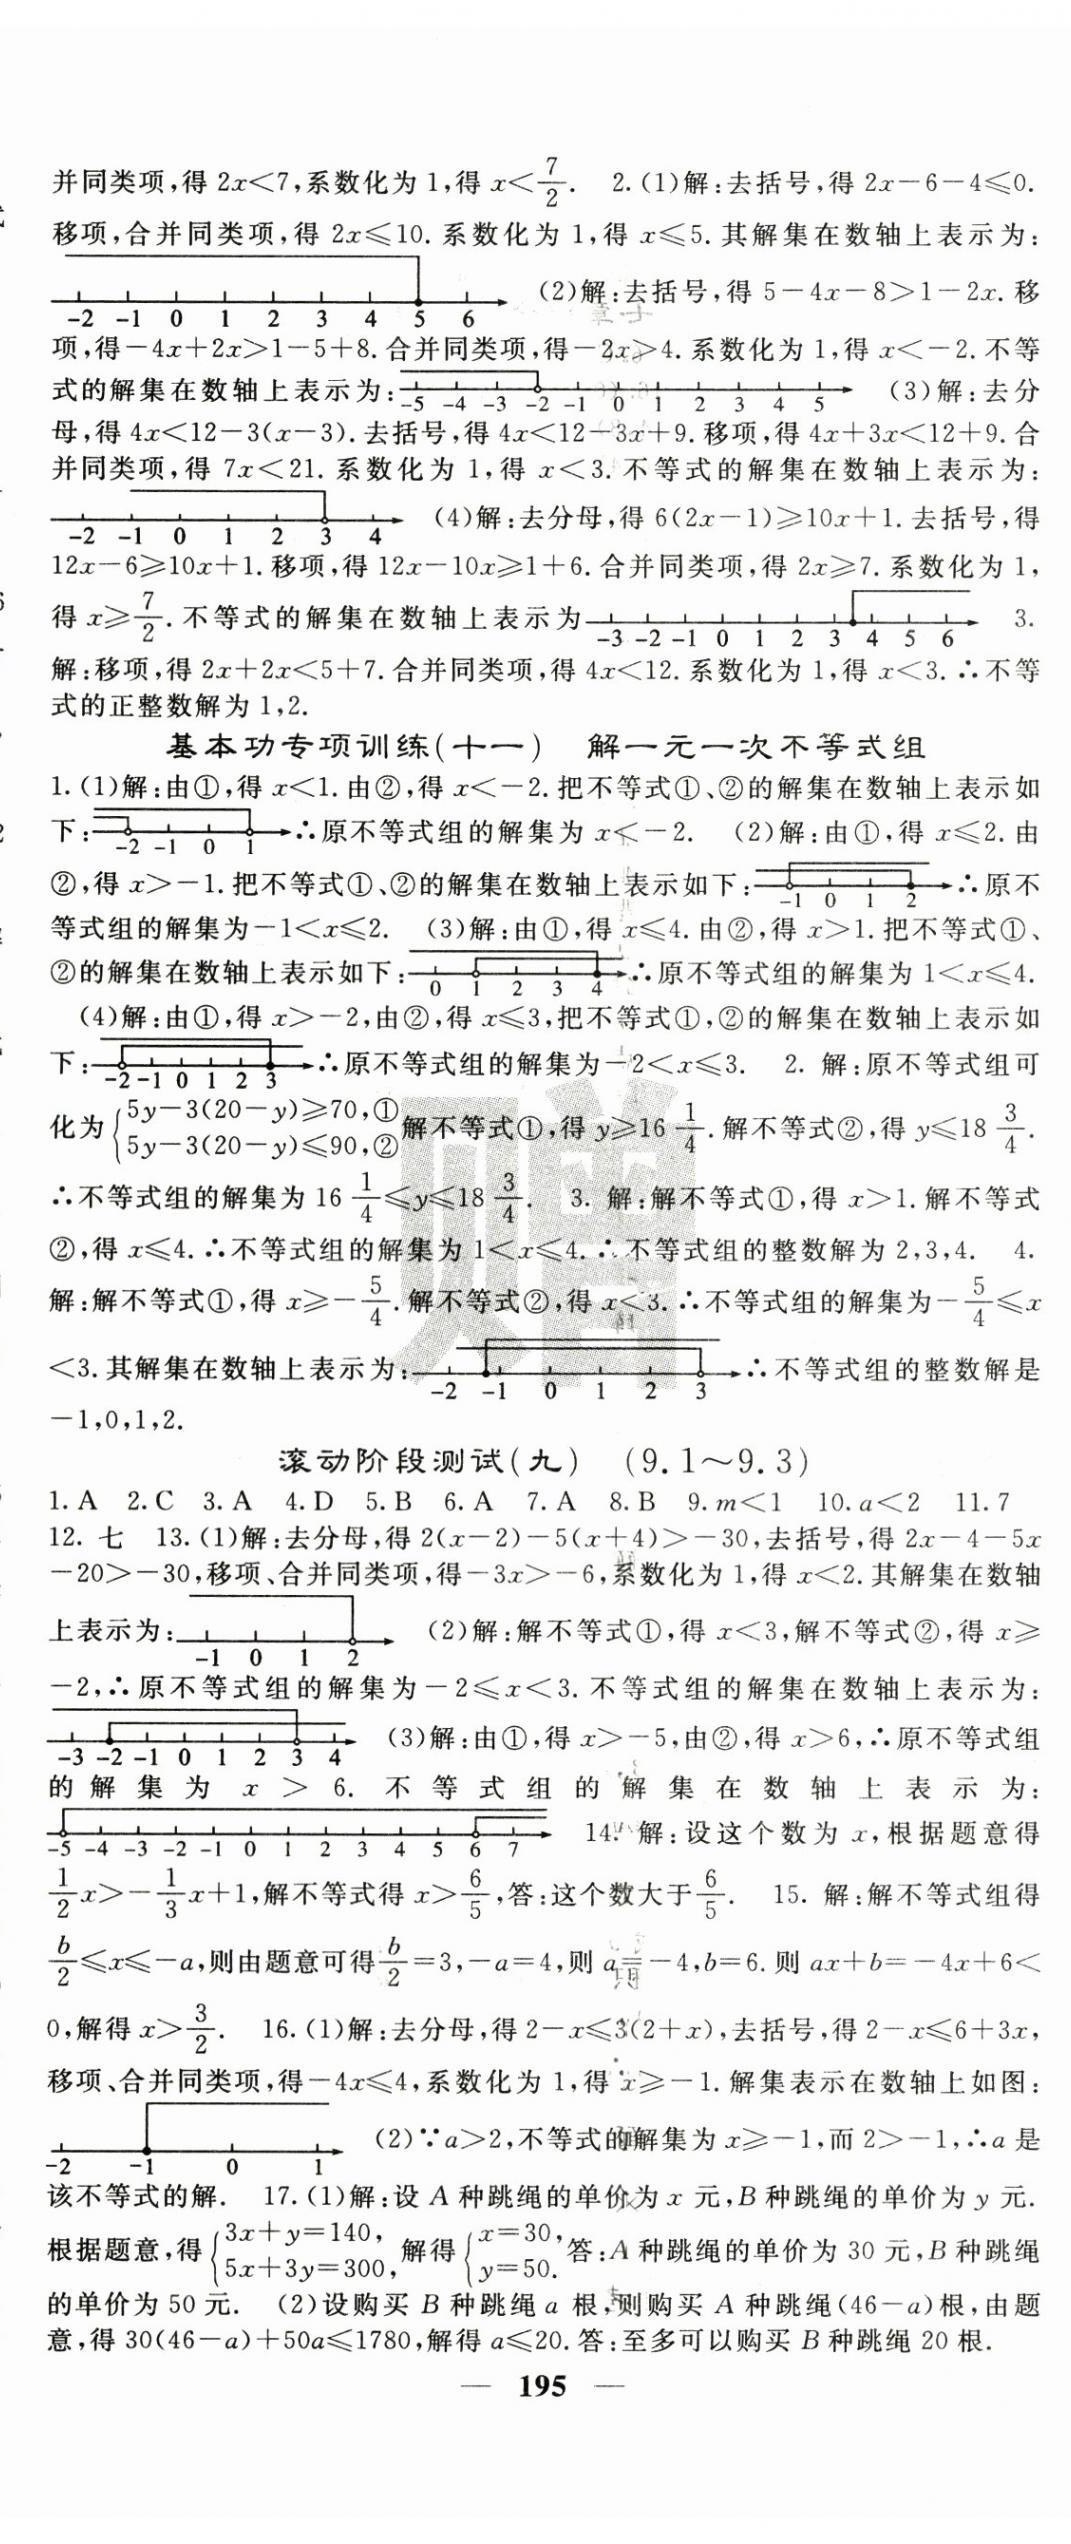 并同类项,得 2x<7,系数化为 1,得 x<7/2. 2.(1)解:去括号,得 2x-6-4≤0.
移项,合并同类项,得 2x≤10.系数化为 1,得 x≤5.其解集在数轴上表示为:
-2 -1 0 1 2 3 4 5 6 (2)解:去括号,得 5-4x-8>1-2x.移
项,得-4x+2x>1-5+8.合并同类项,得-2x>4.系数化为 1,得 x<-2.不等
式的解集在数轴上表示为: -5 -4 -3 -2 -1 0 1 2 3 4 5 (3)解:去分
母,得 4x<12-3(x-3).去括号,得 4x<12-3x+9.移项,得 4x+3x<12+9.合
并同类项,得 7x<21.系数化为 1,得 x<3.不等式的解集在数轴上表示为:
-2 -1 0 1 2 3 4 (4)解:去分母,得 6(2x-1)≥10x+1.去括号,得
12x-6≥10x+1.移项,得 12x-10x≥1+6.合并同类项,得 2x≥7.系数化为 1,
得 x≥7/2.不等式的解集在数轴上表示为 -3 -2 -1 0 1 2 3 4 5 6 3.
解:移项,得 2x+2x<5+7.合并同类项,得 4x<12.系数化为 1,得 x<3.∴不等
式的正整数解为 1,2.
基本功专项训练(十一) 解一元一次不等式组
1.(1)解:由①,得 x<1.由②,得 x<-2.把不等式①、②的解集在数轴上表示如
下: -2 -1 0 1 ∴原不等式组的解集为 x<-2. (2)解:由①,得 x≤2.由
②,得 x>-1.把不等式①、②的解集在数轴上表示如下: -1 0 1 2 ∴原不
等式组的解集为-1<x≤2. (3)解:由①,得 x≤4.由②,得 x>1.把不等式①、
②的解集在数轴上表示如下: 0 1 2 3 4 ∴原不等式组的解集为 1<x≤4.
(4)解:由①,得 x>-2,由②,得 x≤3,把不等式①,②的解集在数轴上表示如
下: -2 -1 0 1 2 3 ∴原不等式组的解集为-2<x≤3. 2. 解:原不等式组可
化为{5y-3(20-y)≥70,① 5y-3(20-y)≤90,② 解不等式①,得 y≥16 1/4.解不等式②,得 y≤18 3/4.
∴不等式组的解集为 16 1/4≤y≤18 3/4. 3. 解:解不等式①,得 x>1.解不等式
②,得 x≤4.∴不等式组的解集为 1<x≤4.∴不等式组的整数解为 2,3,4. 4.
解:解不等式①,得 x≥-5/4.解不等式②,得 x<3.∴不等式组的解集为-5/4≤x
<3.其解集在数轴上表示为: -2 -1 0 1 2 3 ∴不等式组的整数解是
-1,0,1,2.
滚动阶段测试(九) (9.1~9.3)
1.A 2.C 3.A 4.D 5.B 6.A 7.A 8.B 9.m<1 10.a<2 11.7
12. 七 13.(1)解:去分母,得 2(x-2)-5(x+4)>-30,去括号,得 2x-4-5x
-20>-30,移项、合并同类项,得-3x>-6,系数化为 1,得 x<2.其解集在数轴
上表示为: -1 0 1 2 (2)解:解不等式①,得 x<3,解不等式②,得 x≥
-2,∴原不等式组的解集为-2≤x<3.不等式组的解集在数轴上表示为:
-3 -2 -1 0 1 2 3 4 (3)解:由①,得 x>-5,由②,得 x>6,∴原不等式组
的解集为 x>6.不等式组的解集在数轴上表示为:
-5 -4 -3 -2 -1 0 1 2 3 4 5 6 7 14. 解:设这个数为 x,根据题意得
1/2x>-1/3x+1,解不等式得 x>6/5,答:这个数大于6/5. 15. 解:解不等式组得
b/2≤x≤-a,则由题意可得b/2=3,-a=4,则 a=-4,b=6.则 ax+b=-4x+6<
0,解得 x>3/2. 16.(1)解:去分母,得 2-x≤3(2+x),去括号,得 2-x≤6+3x,
移项、合并同类项,得-4x≤4,系数化为 1,得 x≥-1.解集表示在数轴上如图:
-2 -1 0 1 (2)∵a>2,不等式的解集为 x≥-1,而 2>-1,∴a 是
该不等式的解. 17.(1)解:设 A 种跳绳的单价为 x 元,B 种跳绳的单价为 y 元.
根据题意,得{3x+y=140, 5x+3y=300, 解得{x=30, y=50. 答:A 种跳绳的单价为 30 元,B 种跳绳
的单价为 50 元. (2)设购买 B 种跳绳 a 根,则购买 A 种跳绳(46-a)根,由题
意,得 30(46-a)+50a≤1780,解得 a≤20.答:至多可以购买 B 种跳绳 20 根.
— 195 —